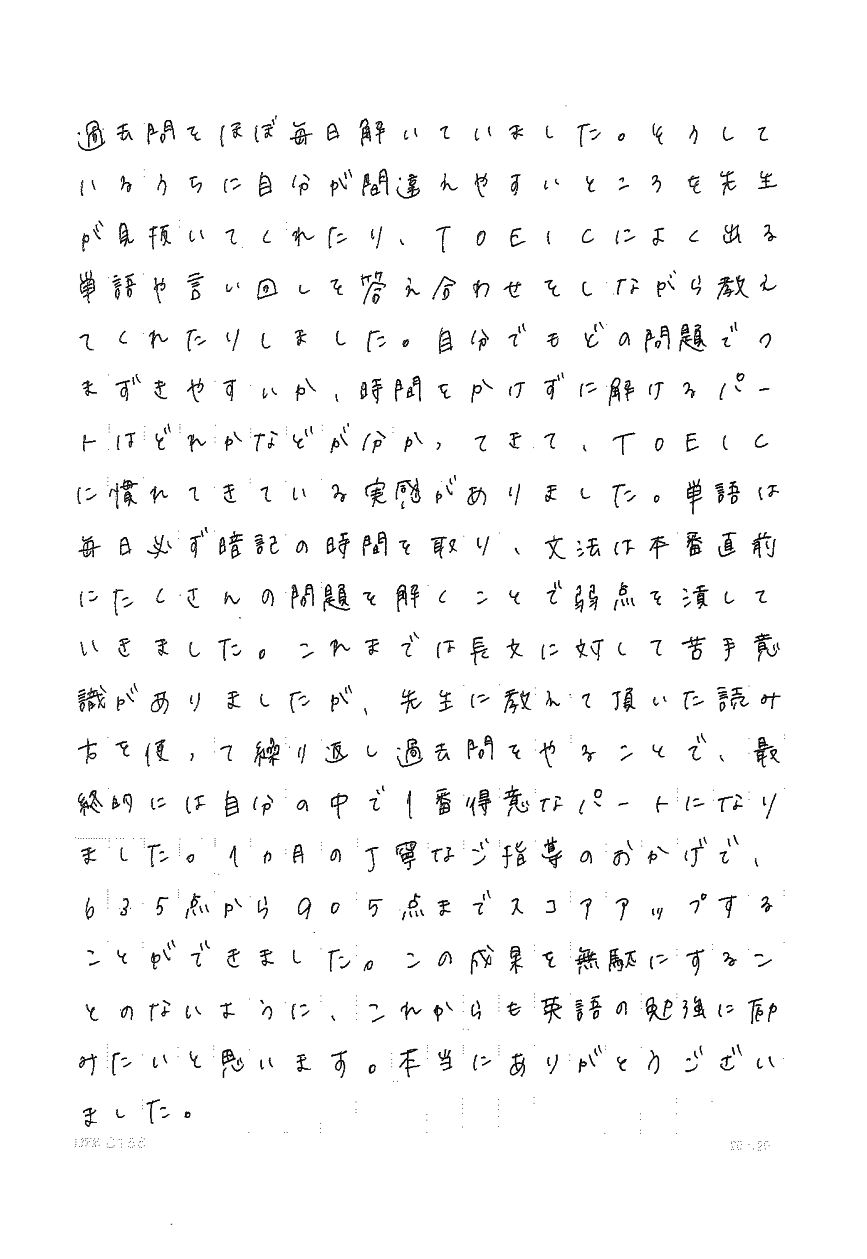 過去問をほぼ毎日解いていました。そうして
いるうちに自分が間違えやすいところを先生
が見抜いてくれたり、TOEICによく出る
単語や言い回しを答え合わせをしながら教え
てくれたりしました。自分でもどの問題でつ
まずきやすいか、時間をかけずに解けるパー
トはどれかなどが分かってきて、TOEIC
に慣れてきている実感がありました。単語は
毎日必ず暗記の時間を取り、文法は本番直前
にたくさんの問題を解くことで弱点を潰して
いきました。これまでは長文に対して苦手意
識がありましたが、先生に教えて頂いた読み
方を使って繰り返し過去問をやることで、最
終的には自分の中で1番得意なパートになり
ました。1ヵ月の丁寧なご指導のおかげで、
635点から905点までスコアアップする
ことができました。この成果を無駄にするこ
とのないように、これからも英語の勉強に励
みたいと思います。本当にありがとうござい
ました。